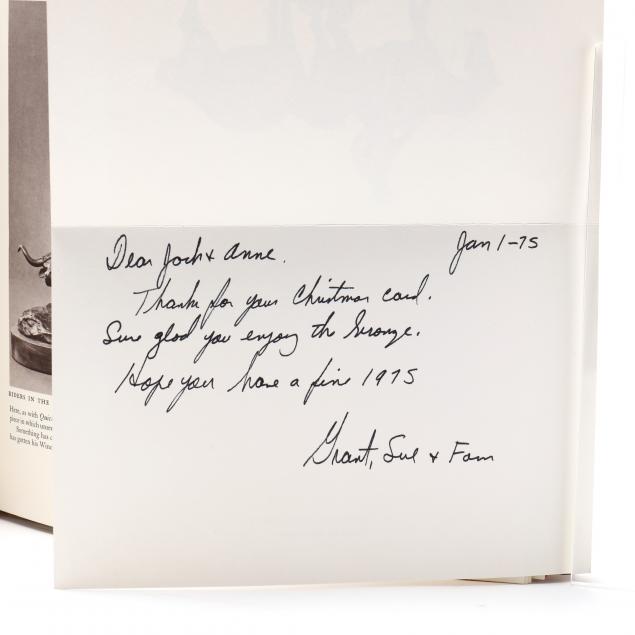 Jan 1-75
Dear Jack + Anne.
Thanks for your Christmas card.
Sure glad you enjoy the bronze.
Hope your have a fine 1975
Grant, Sue + Fam
RIDERS IN THE
Here, as with
piece in which
Something has
has gotten his